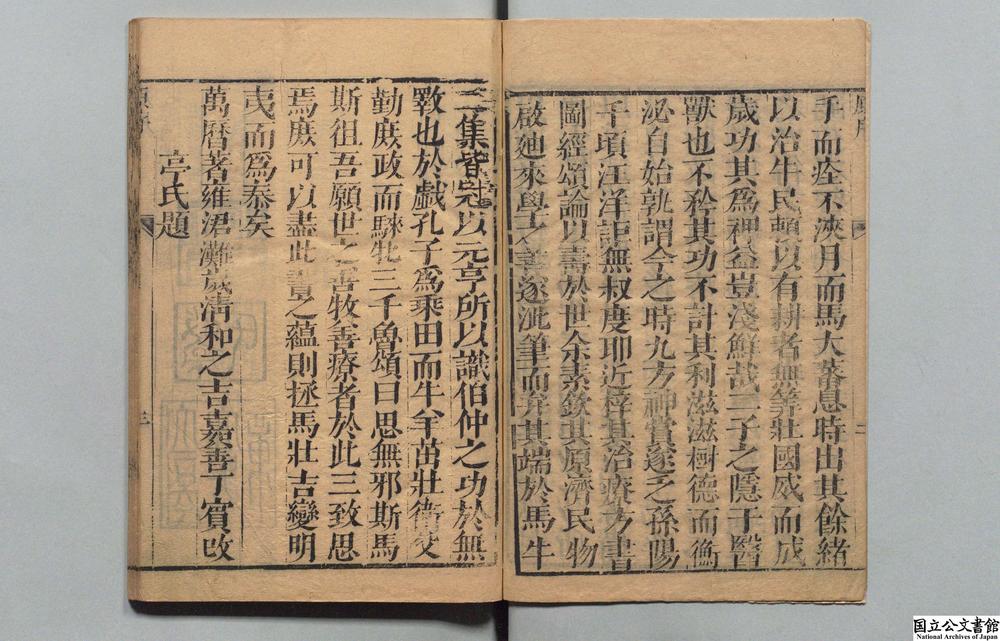 原序
手而痊不浹月而馬大蕃息時出其餘緒
以治牛民賴以有耕者無筭壯國威而成
歲功其為裨益豈淺鮮哉二子之隱于醫
獸也不矜其功不計其利滋滋樹德而衡
泌自始孰謂今之時九方神賞遂乏孫陽
千頃汪洋詎無叔度耶近梓其治療方書
圖經頌論以壽於世余素欽其原濟民物
啟廸來學之善遂泚筆而弁其端於馬牛
二
三集皆冠以元亨所以識伯仲之功於無
斁也於戲孔子為乘田而牛羊茁壯衛文
勤庶政而騋牝三千魯頌曰思無邪斯馬
斯徂吾願世之善牧善療者於此三致思
焉庶可以盡此書之蘊則拯馬壯吉變明
夷而為泰矣
萬曆著雍涒灘歲清和之吉嘉善丁賓改
亭氏題
原序
三
国立公文書館
National Archives of Japan